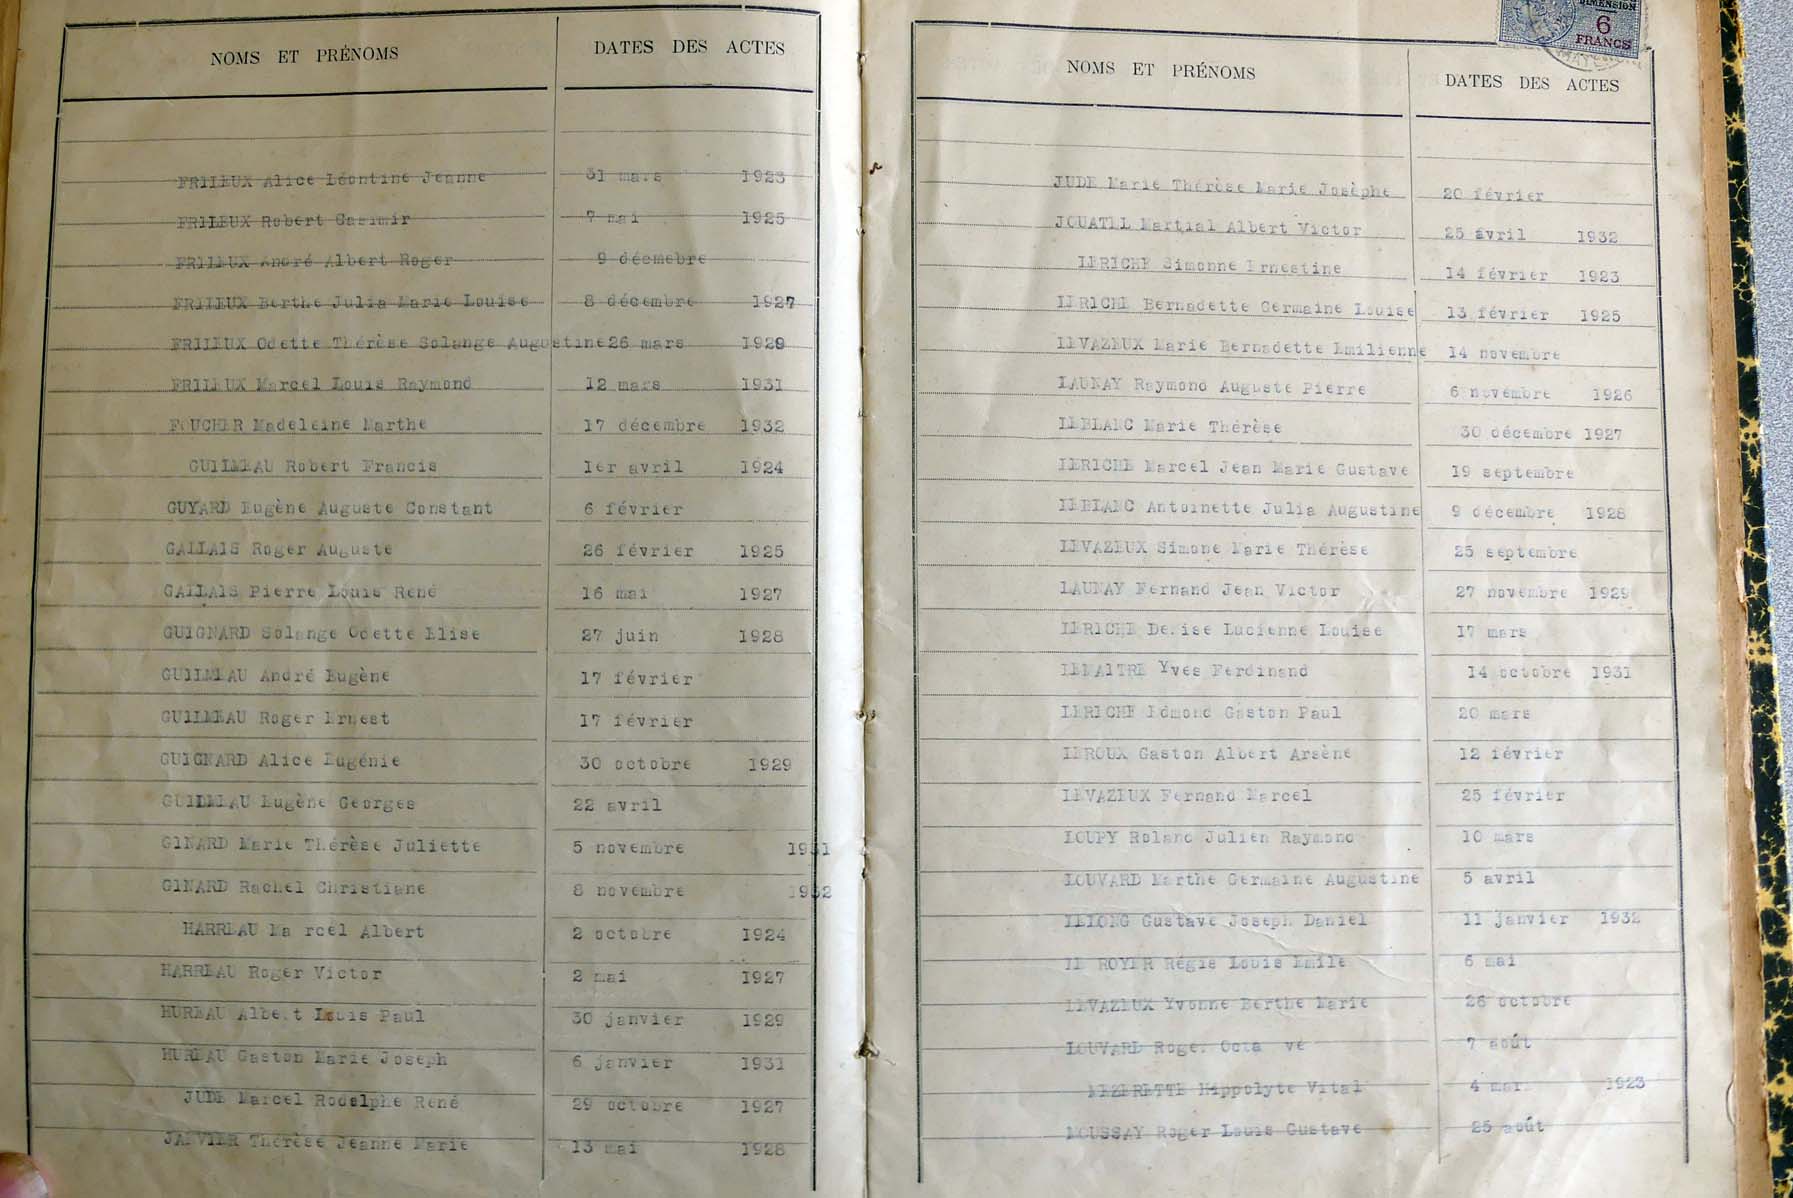 NOMS ET PRÉNOMS DATES DES ACTES
FRILEUX Alice Léontine Jeanne 31 mars 1923
FRILEUX Robert Casimir 7 mai 1925
FRILEUX André Albert Roger 9 décmebre
FRILEUX Berthe Julia Marie Louise 8 décembre 1927
FRILEUX Odette Thérèse Solange Augustine 26 mars 1929
FRILEUX Marcel Louis Raymond 12 mars 1931
FOUCHER Madeleine Marthe 17 décembre 1932
GUILMEAU Robert Francis 1er avril 1924
GUYARD Eugène Auguste Constant 6 février
GALLAIS Roger Auguste 26 février 1925
GALLAIS Pierre Louis René 16 mai 1927
GUIGNARD Solange Odette Elise 27 juin 1928
GUILMEAU André Eugène 17 février
GUILMEAU Roger Ernest 17 février
GUIGNARD Alice Eugénie 30 octobre 1929
GUILMEAU Eugène Georges 22 avril
GINARD Marie Thérèse Juliette 5 novembre 1931
GINARD Rachel Christiane 8 novembre 1932
HARREAU Ma rcel Albert 2 octobre 1924
HARREAU Roger Victor 2 mai 1927
HUREAU Albert Louis Paul 30 janvier 1929
HUREAU Gaston Marie Joseph 6 janvier 1931
JUDE Marcel Rodolphe René 29 octobre 1927
JANVIER Thérèse Jeanne Marie 13 mai 1928
DIMENSION
6
FRANCS
NOMS ET PRÉNOMS DATES DES ACTES
JUDE Marie Thérèse Marie Josèphe 20 février
JOUATEL Martial Albert Victor 25 avril 1932
LERICHE Simonne Ernestine 14 février 1923
LERICHE Bernadette Germaine Louise 13 février 1925
LEVAZEUX Marie Bernadette Emilienne 14 novembre
LAUNAY Raymond Auguste Pierre 6 novembre 1926
LEBLANC Marie Thérèse 30 décembre 1927
LERICHE Marcel Jean Marie Gustave 19 septembre
LEBLANC Antoinette Julia Augustine 9 décembre 1928
LEVAZEUX Simone Marie Thérèse 25 septembre
LAUNAY Fernand Jean Victor 27 novembre 1929
LERICHE Denise Lucienne Louise 17 mars
LEMAITRE Yves Ferdinand 14 octobre 1931
LERICHE Edmond Gaston Paul 20 mars
LEROUX Gaston Albert Arsène 12 février
LEVAZEUX Fernand Marcel 25 février
LOUPY Roland Julien Raymond 10 mars
LOUVARD Marthe Germaine Augustine 5 avril
LELONG Gustave Joseph Daniel 11 janvier 1932
LE ROYER Régis Louis Emile 6 mai
LEVAZEUX Yvonne Berthe Marie 26 octobre
LOUVARD Roger Octa ve 7 août
MEZERETTE Hippolyte Vital 4 mars 1923
MOUSSAY Roger Louis Gustave 25 août